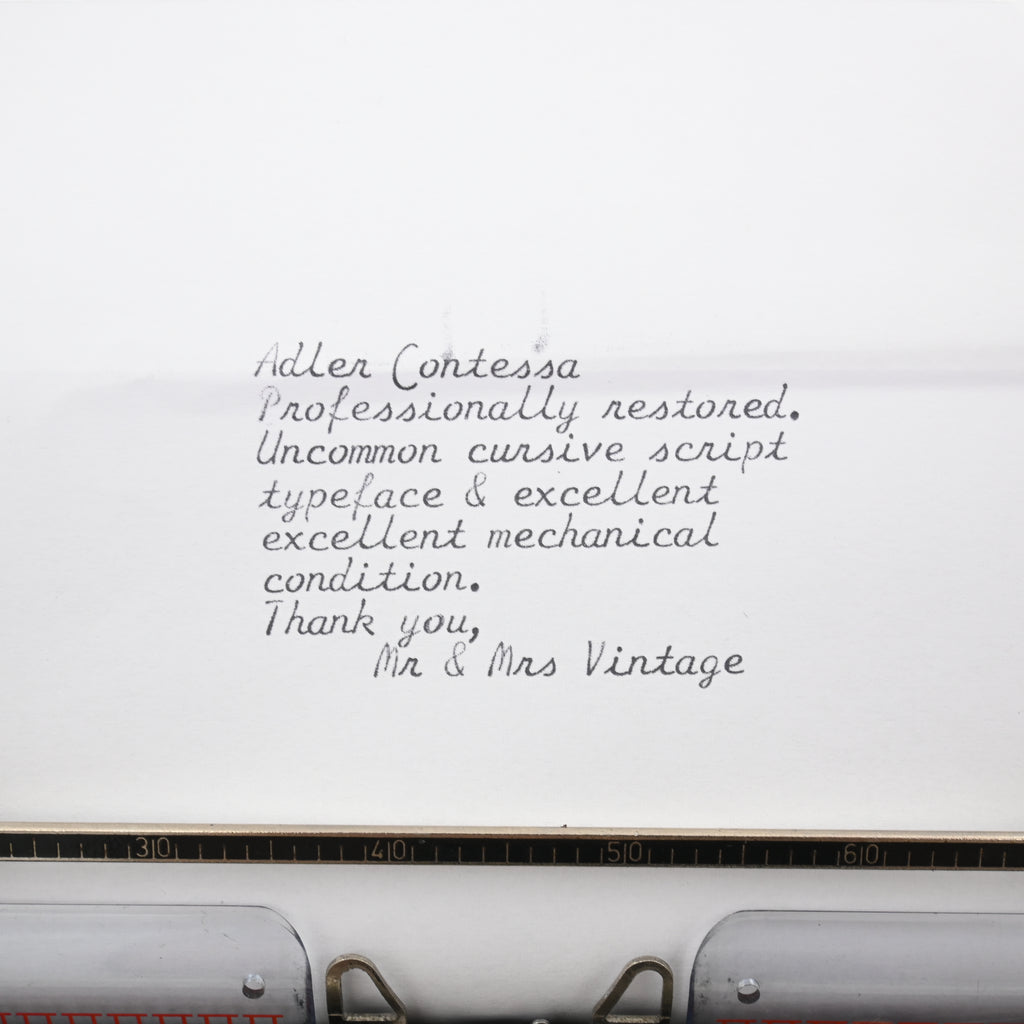 Adler Contessa
Professionally restored.
Uncommon cursive script
typeface & excellent
excellent mechanical
condition.
Thank you,
Mr & Mrs Vintage
30 40 50 60